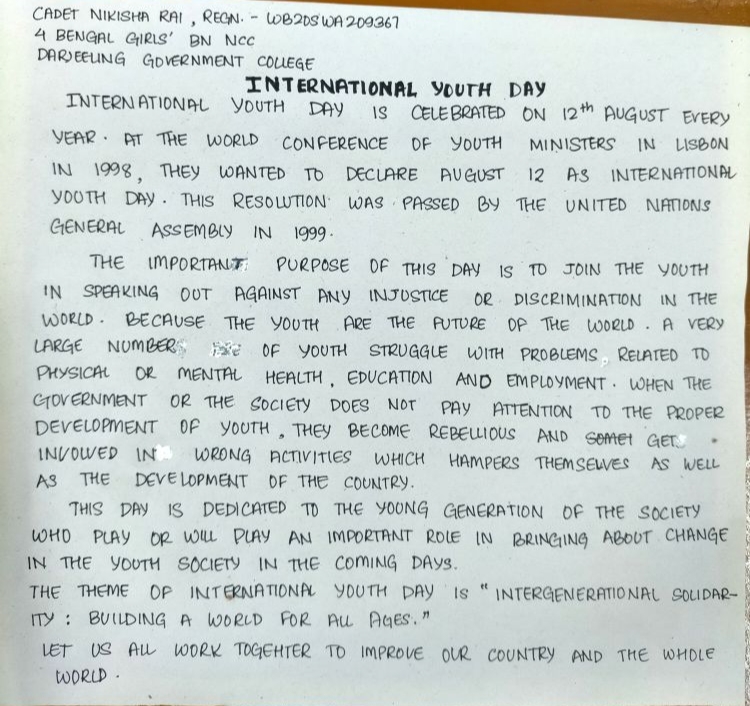 CADET NIKISHA RAI, REGN. - WB20SWA209367
4 BENGAL GIRLS' BN NCC
DARJEELING GOVERNMENT COLLEGE
INTERNATIONAL YOUTH DAY
INTERNATIONAL YOUTH DAY IS CELEBRATED ON 12th AUGUST EVERY
YEAR. AT THE WORLD CONFERENCE OF YOUTH MINISTERS IN LISBON
IN 1998, THEY WANTED TO DECLARE AUGUST 12 AS INTERNATIONAL
YOUTH DAY. THIS RESOLUTION WAS PASSED BY THE UNITED NATIONS
GENERAL ASSEMBLY IN 1999.
THE IMPORTANT PURPOSE OF THIS DAY IS TO JOIN THE YOUTH
IN SPEAKING OUT AGAINST ANY INJUSTICE OR DISCRIMINATION IN THE
WORLD. BECAUSE THE YOUTH ARE THE FUTURE OF THE WORLD. A VERY
LARGE NUMBER OF YOUTH STRUGGLE WITH PROBLEMS, RELATED TO
PHYSICAL OR MENTAL HEALTH, EDUCATION AND EMPLOYMENT. WHEN THE
GOVERNMENT OR THE SOCIETY DOES NOT PAY ATTENTION TO THE PROPER
DEVELOPMENT OF YOUTH, THEY BECOME REBELLIOUS AND SOMET GET
INVOLVED IN WRONG ACTIVITIES WHICH HAMPERS THEMSELVES AS WELL
AS THE DEVELOPMENT OF THE COUNTRY.
THIS DAY IS DEDICATED TO THE YOUNG GENERATION OF THE SOCIETY
WHO PLAY OR WILL PLAY AN IMPORTANT ROLE IN BRINGING ABOUT CHANGE
IN THE YOUTH SOCIETY IN THE COMING DAYS.
THE THEME OF INTERNATIONAL YOUTH DAY IS "INTERGENERATIONAL SOLIDAR-
ITY: BUILDING A WORLD FOR ALL AGES."
LET US ALL WORK TOGEHTER TO IMPROVE OUR COUNTRY AND THE WHOLE
WORLD.